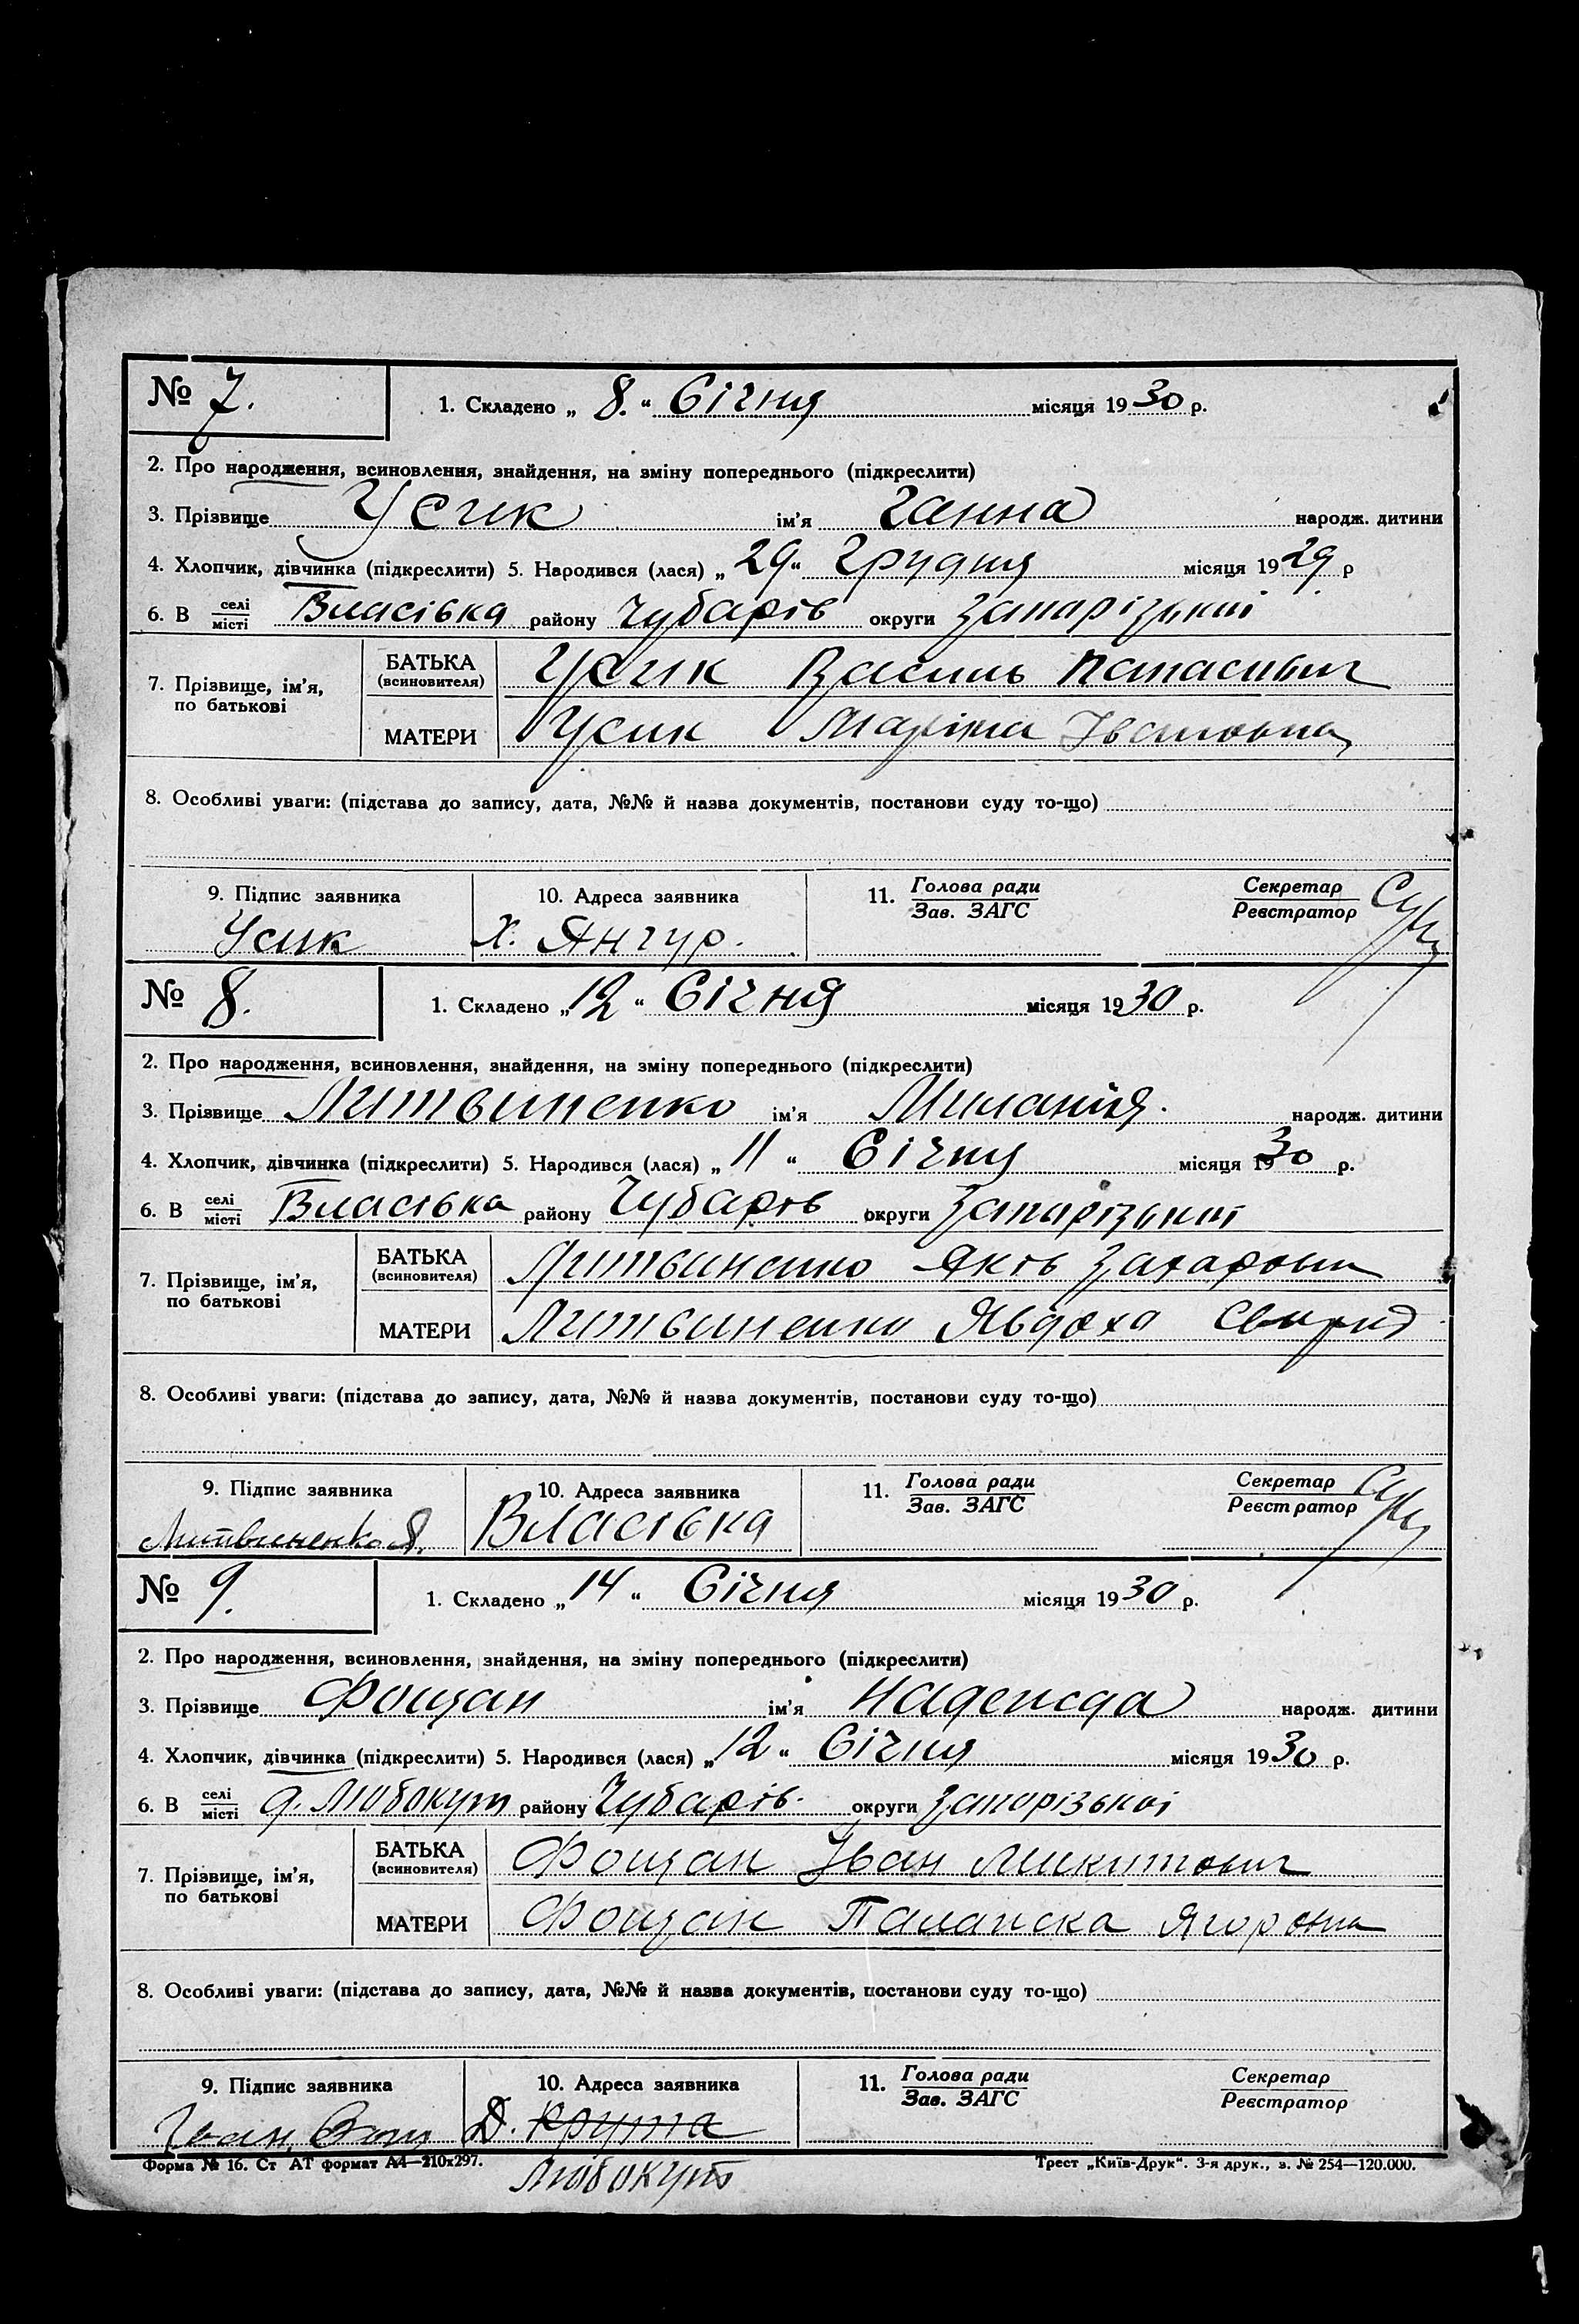 № 7. 1. Складено „ 8. “ Січня місяця 1930 р.
2. Про народження, всиновлення, знайдення, на зміну попереднього (підкреслити)
3. Прізвище Усик ім'я Ганна народж. дитини
4. Хлопчик, дівчинка (підкреслити) 5. Народився (лася) „ 29 “ Грудня місяця 1929 р
6. В селі місті Власівка району Чубарів округи Запорізької
7. Прізвище, ім'я, по батькові
БАТЬКА (всиновителя) Усик Василь Панасович
МАТЕРИ Усик Івановна
8. Особливі уваги: (підстава до запису, дата, №№ й назва документів, постанови суду то-що)
9. Підпис заявника 10. Адреса заявника 11. Голова ради Зав. ЗАГС Секретар Реєстратор
Усик х. Янгур.
№ 8. 1. Складено „ 12 “ Січня місяця 1930 р.
2. Про народження, всиновлення, знайдення, на зміну попереднього (підкреслити)
3. Прізвище Литвиненко ім'я Миланія. народж. дитини
4. Хлопчик, дівчинка (підкреслити) 5. Народився (лася) „ 11 “ Січня місяця 1930 р.
6. В селі місті Власівка району Чубарів округи Запорізької
7. Прізвище, ім'я, по батькові
БАТЬКА (всиновителя) Литвиненко Яків Захарович
МАТЕРИ Литвиненко Явдоха Свирид
8. Особливі уваги: (підстава до запису, дата, №№ й назва документів, постанови суду то-що)
9. Підпис заявника 10. Адреса заявника 11. Голова ради Зав. ЗАГС Секретар Реєстратор
Литвиненко Я. Власівка
№ 9. 1. Складено „ 14 “ Січня місяця 1930 р.
2. Про народження, всиновлення, знайдення, на зміну попереднього (підкреслити)
3. Прізвище Фощан ім'я Надежда народж. дитини
4. Хлопчик, дівчинка (підкреслити) 5. Народився (лася) „ 12 “ Січня місяця 1930 р.
6. В селі місті д. Любокут району Чубарів. округи Запорізької
7. Прізвище, ім'я, по батькові
БАТЬКА (всиновителя) Фощан Іван Микитович
МАТЕРИ Фощан Паланска Ягоровна
8. Особливі уваги: (підстава до запису, дата, №№ й назва документів, постанови суду то-що)
9. Підпис заявника 10. Адреса заявника 11. Голова ради Зав. ЗАГС Секретар Реєстратор
Іван Д. Крута
Форма № 16. Ст АТ формат А4—210х297. Любокут Трест „Київ-Друк“. 3-я друк., з. № 254—120.000.